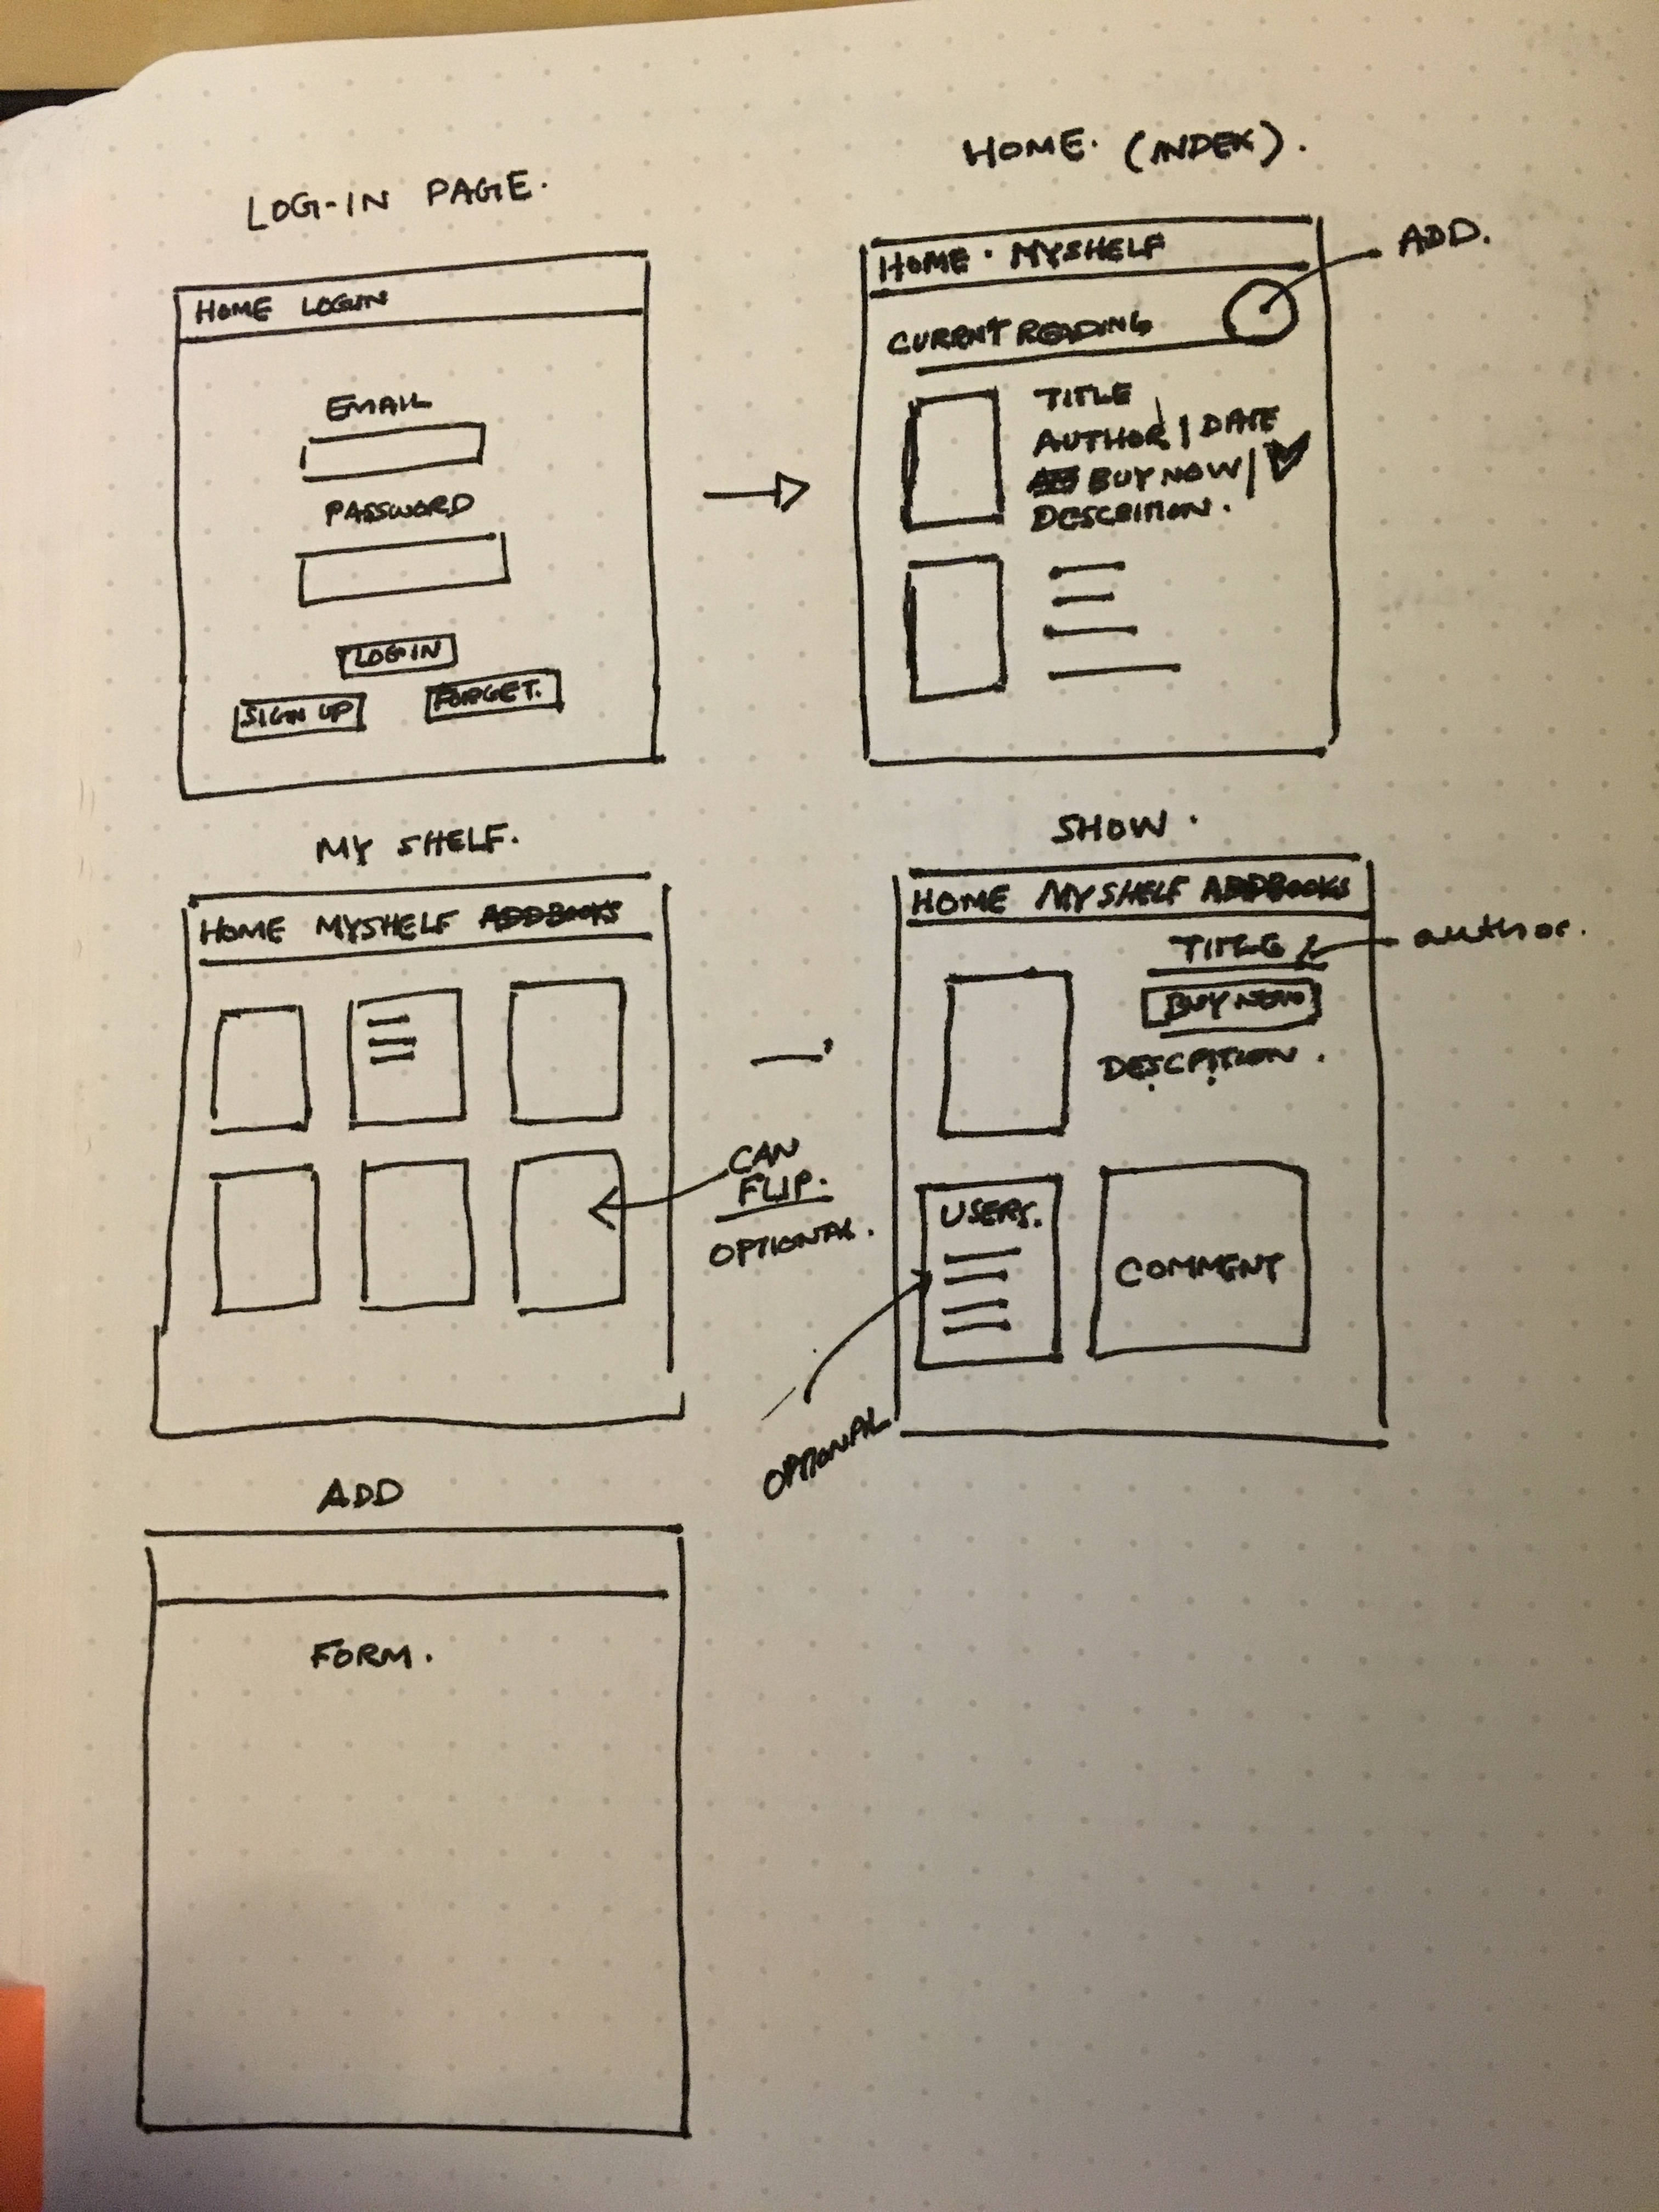 LOG-IN PAGE.
HOME LOGIN
EMAIL
PASSWORD
LOGIN
SIGN UP
FORGET.
HOME. (INDEX).
HOME · MYSHELF
ADD.
CURRNT READING
TITLE
AUTHOR | DATE
BUY NOW |
DESCRITION.
MY SHELF.
HOME MYSHELF ADDBOOKS
CAN
FLIP.
OPTIONAL.
SHOW.
HOME MYSHELF ADDBOOKS
TITLE
author.
BUY NOW
DESCPITION.
USERS.
COMMENT
OPTIONAL
ADD
FORM.